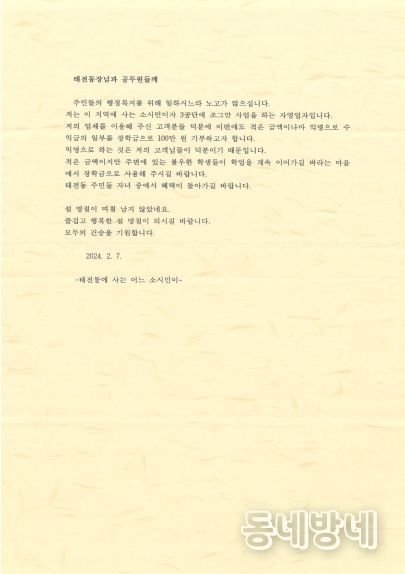 태전동장님과 공무원들께
주민들의 행정복지를 위해 일하시느라 노고가 많으십니다.
저는 이 지역에 사는 소시민이자 3공단에 조그만 사업을 하는 자영업자입니다.
저의 업체를 이용해 주신 고객분들 덕분에 이번에도 적은 금액이나마 익명으로 수
익금의 일부를 장학금으로 100만 원 기부하고자 합니다.
익명으로 하는 것은 저의 고객님들이 덕분이기 때문입니다.
적은 금액이지만 주변에 있는 불우한 학생들이 학업을 계속 이어가길 바라는 마음
에서 장학금으로 사용해 주시길 바랍니다.
태전동 주민들 자녀 중에서 혜택이 돌아가길 바랍니다.
설 명절이 며칠 남지 않았네요.
즐겁고 행복한 설 명절이 되시길 바랍니다.
모두의 건승을 기원합니다.
2024. 2. 7.
-태전동에 사는 어느 소시민이-
동네방네